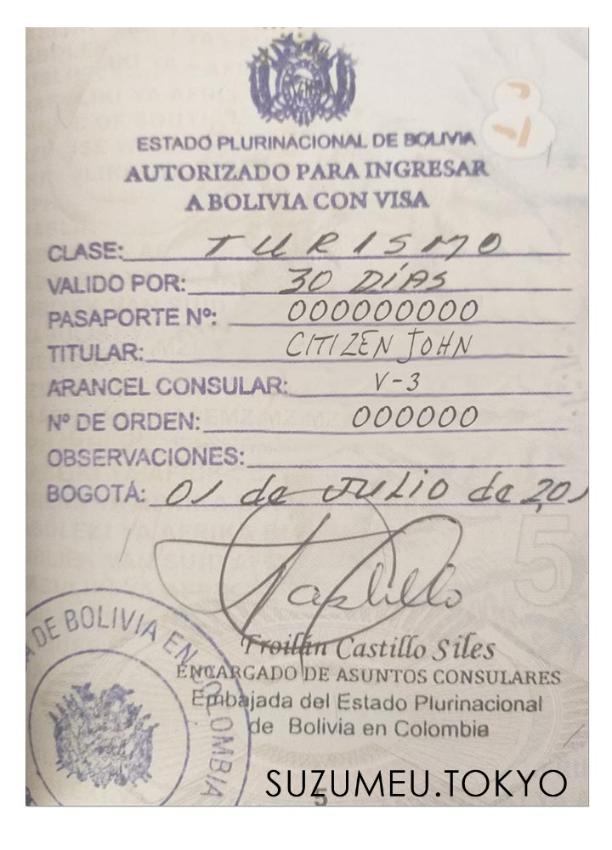 ESTADO PLURINACIONAL DE BOLIVIA
AUTORIZADO PARA INGRESAR
A BOLIVIA CON VISA
CLASE: TURISMO
VALIDO POR: 30 DÍAS
PASAPORTE Nº: 000000000
TITULAR: CITIZEN JOHN
ARANCEL CONSULAR: V-3
Nº DE ORDEN: 000000
OBSERVACIONES:
BOGOTÁ: 01 de JULIO de 201
5
Castillo
Froilán Castillo Siles
ENCARGADO DE ASUNTOS CONSULARES
Embajada del Estado Plurinacional
de Bolivia en Colombia
DE BOLIVIA EN COLOMBIA
5
SUZUMEU.TOKYO